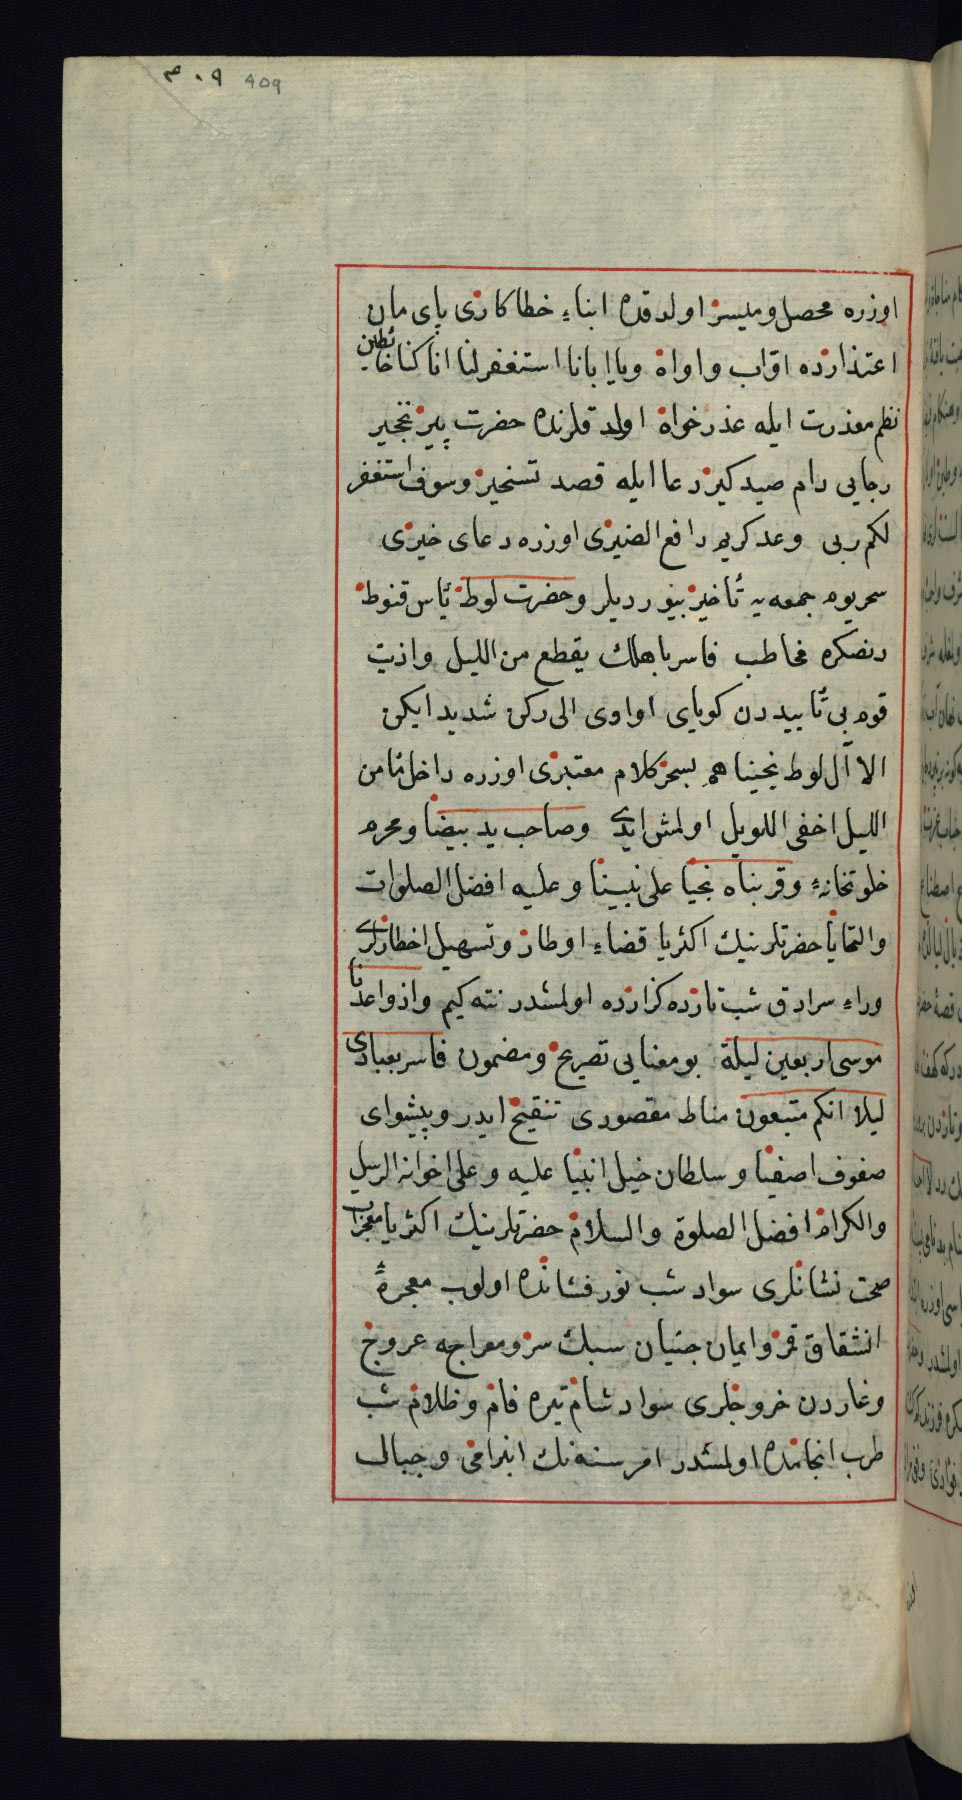 ٤٠٩ 409
اوزره محصل و ميسر اولدقده ابناء خطا كارى پاى مان
اعتذارده اواب و اواه و يا ابانا استغفر لنا انا كنا خاطئين
نظم معذرت ايله عذر خواه اولدقلرنده حضرت پير نخجير
رجايى دام صيد كير دعا ايله قصد تسخير و سوف استغفر
لكم ربى وعد كريم دافع الضيرى اوزره دعاى خيرى
سحر يوم جمعه يه تأخير بيورديلر و حضرت لوط يأس قنوط
دنصكره مخاطب فاسر باهلك بقطع من الليل و اذيت
قوم بى تأييددن كوياى او اوى الى ركن شديد ايكن
الا آل لوط نجيناهم بسحر كلام معتبرى اوزره داخل مأمن
الليل اخفى للويل اولمش ايدى و صاحب يد بيضا و محرم
خلوتخانهء و قربناه نجيا على نبينا و عليه افضل الصلوات
والتحايا حضرتلرينك اكثريا قضاء اوطار و تسهيل اخطارلرى
وراء سرادق شب تارده كزارده اولمشدر نته كيم و اذ واعدنا
موسى اربعين ليلة بو معنايى تصريح و مضمون فاسر بعبادى
ليلا انكم متبعون مناط مقصورى تنقيح ايدر و پيشواى
صفوف اصفيا و سلطان خيل انبيا عليه و على اخوانه الرسل
والكرام افضل الصلوة والسلام حضرتلرينك اكثريا معجزات
صحت نشانلرى سواد شب نور فشانده اولوب معجزهٔ
انشقاق قمر و ايمان جنيان سبك سر و معراجه عروج
و غاردن خروجلرى سواد شام تيره فام و ظلام شب
طرب انجامده اولمشدر افرسنه نك ابرامى و جبال